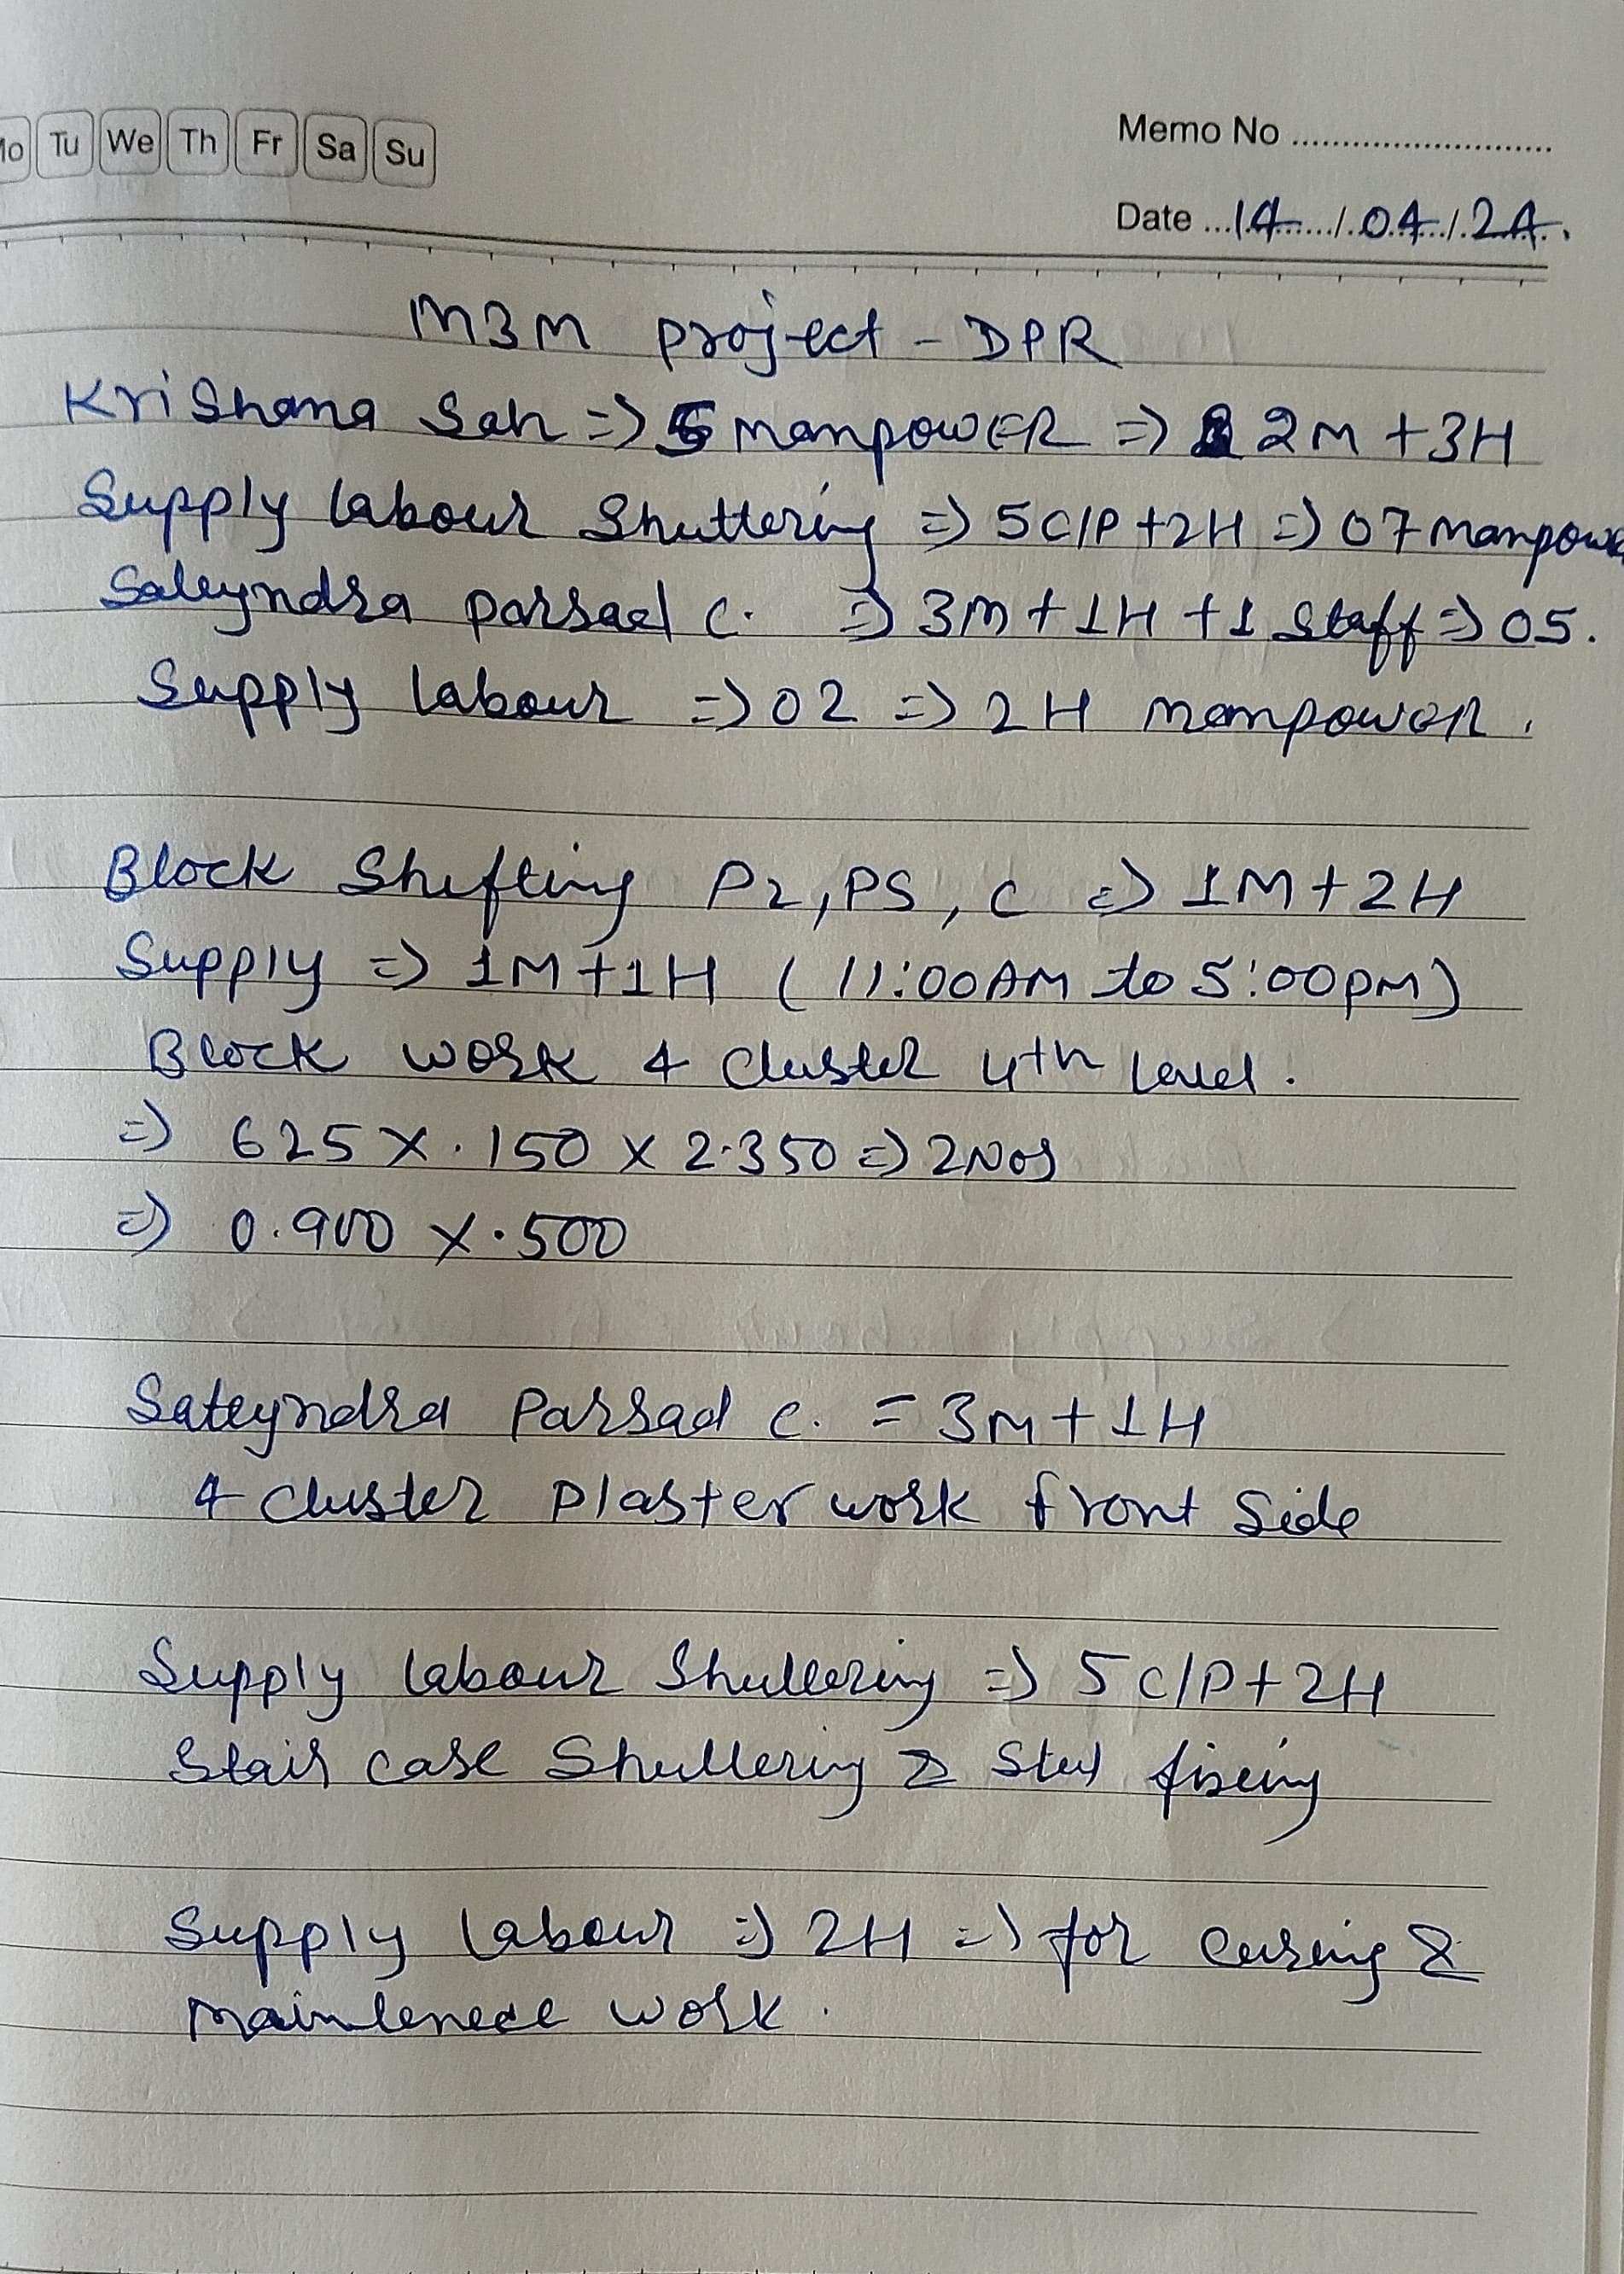 Mo Tu We Th Fr Sa Su
Memo No
Date 14/04/24.
M3M project - DPR
Krishana Sah => 5 manpowER => 2M + 3H
Supply labour Shuttering => 5C/P + 2H => 07 manpowe
Sateyndra parsad C. => 3M + 1H + 1 Staff => 05.
Supply labour => 02 => 2H manpoweR.
Block Shifting P2, PS, C => 1M + 2H
Supply => 1M + 1H (11:00AM to 5:00PM)
Block work 4 Cluster 4th level.
=> 625 X .150 X 2.350 => 2Nos
=> 0.900 X .500
Sateyndra Parsad C. = 3M + 1H
4 Cluster Plaster work front Side
Supply labour Shuttering => 5 C/P + 2H
Stair case Shuttering & Steel fixing
Supply labour => 2H => for curing &
Maintenece work.